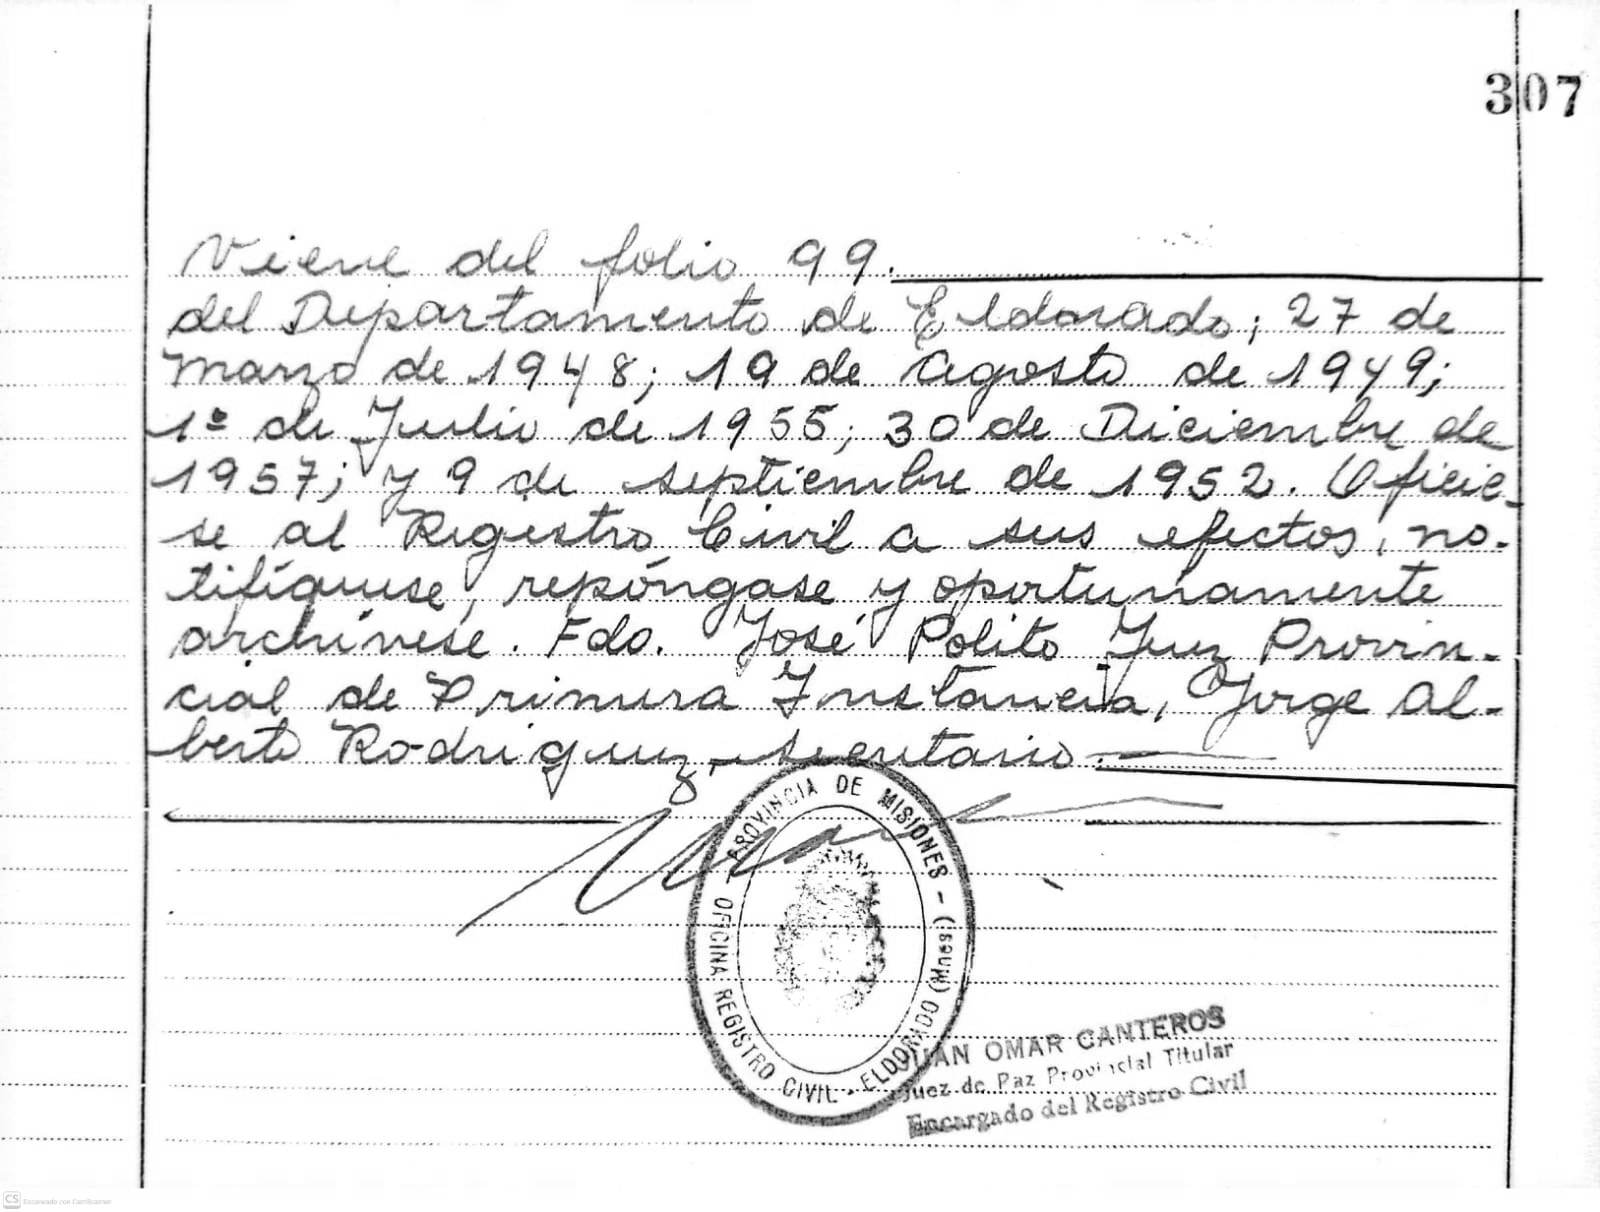 307
Viene del folio 99.
del Departamento de Eldorado; 27 de
Marzo de 1948; 19 de Agosto de 1949;
1º de Julio de 1955; 30 de Diciembre de
1957; y 9 de septiembre de 1952. Ofície-
se al Registro Civil a sus efectos, no-
tifíquese, repóngase y oportunamente
archívese. Fdo. José Polito Juez Provin-
cial de Primera Instancia, Jorge Al-
berto Rodriguez, secretario.
PROVINCIA DE MISIONES - (Mnes.)
OFICINA REGISTRO CIVIL - ELDORADO
JUAN OMAR CANTEROS
Juez de Paz Provincial Titular
Encargado del Registro Civil
CS Escaneado con CamScanner